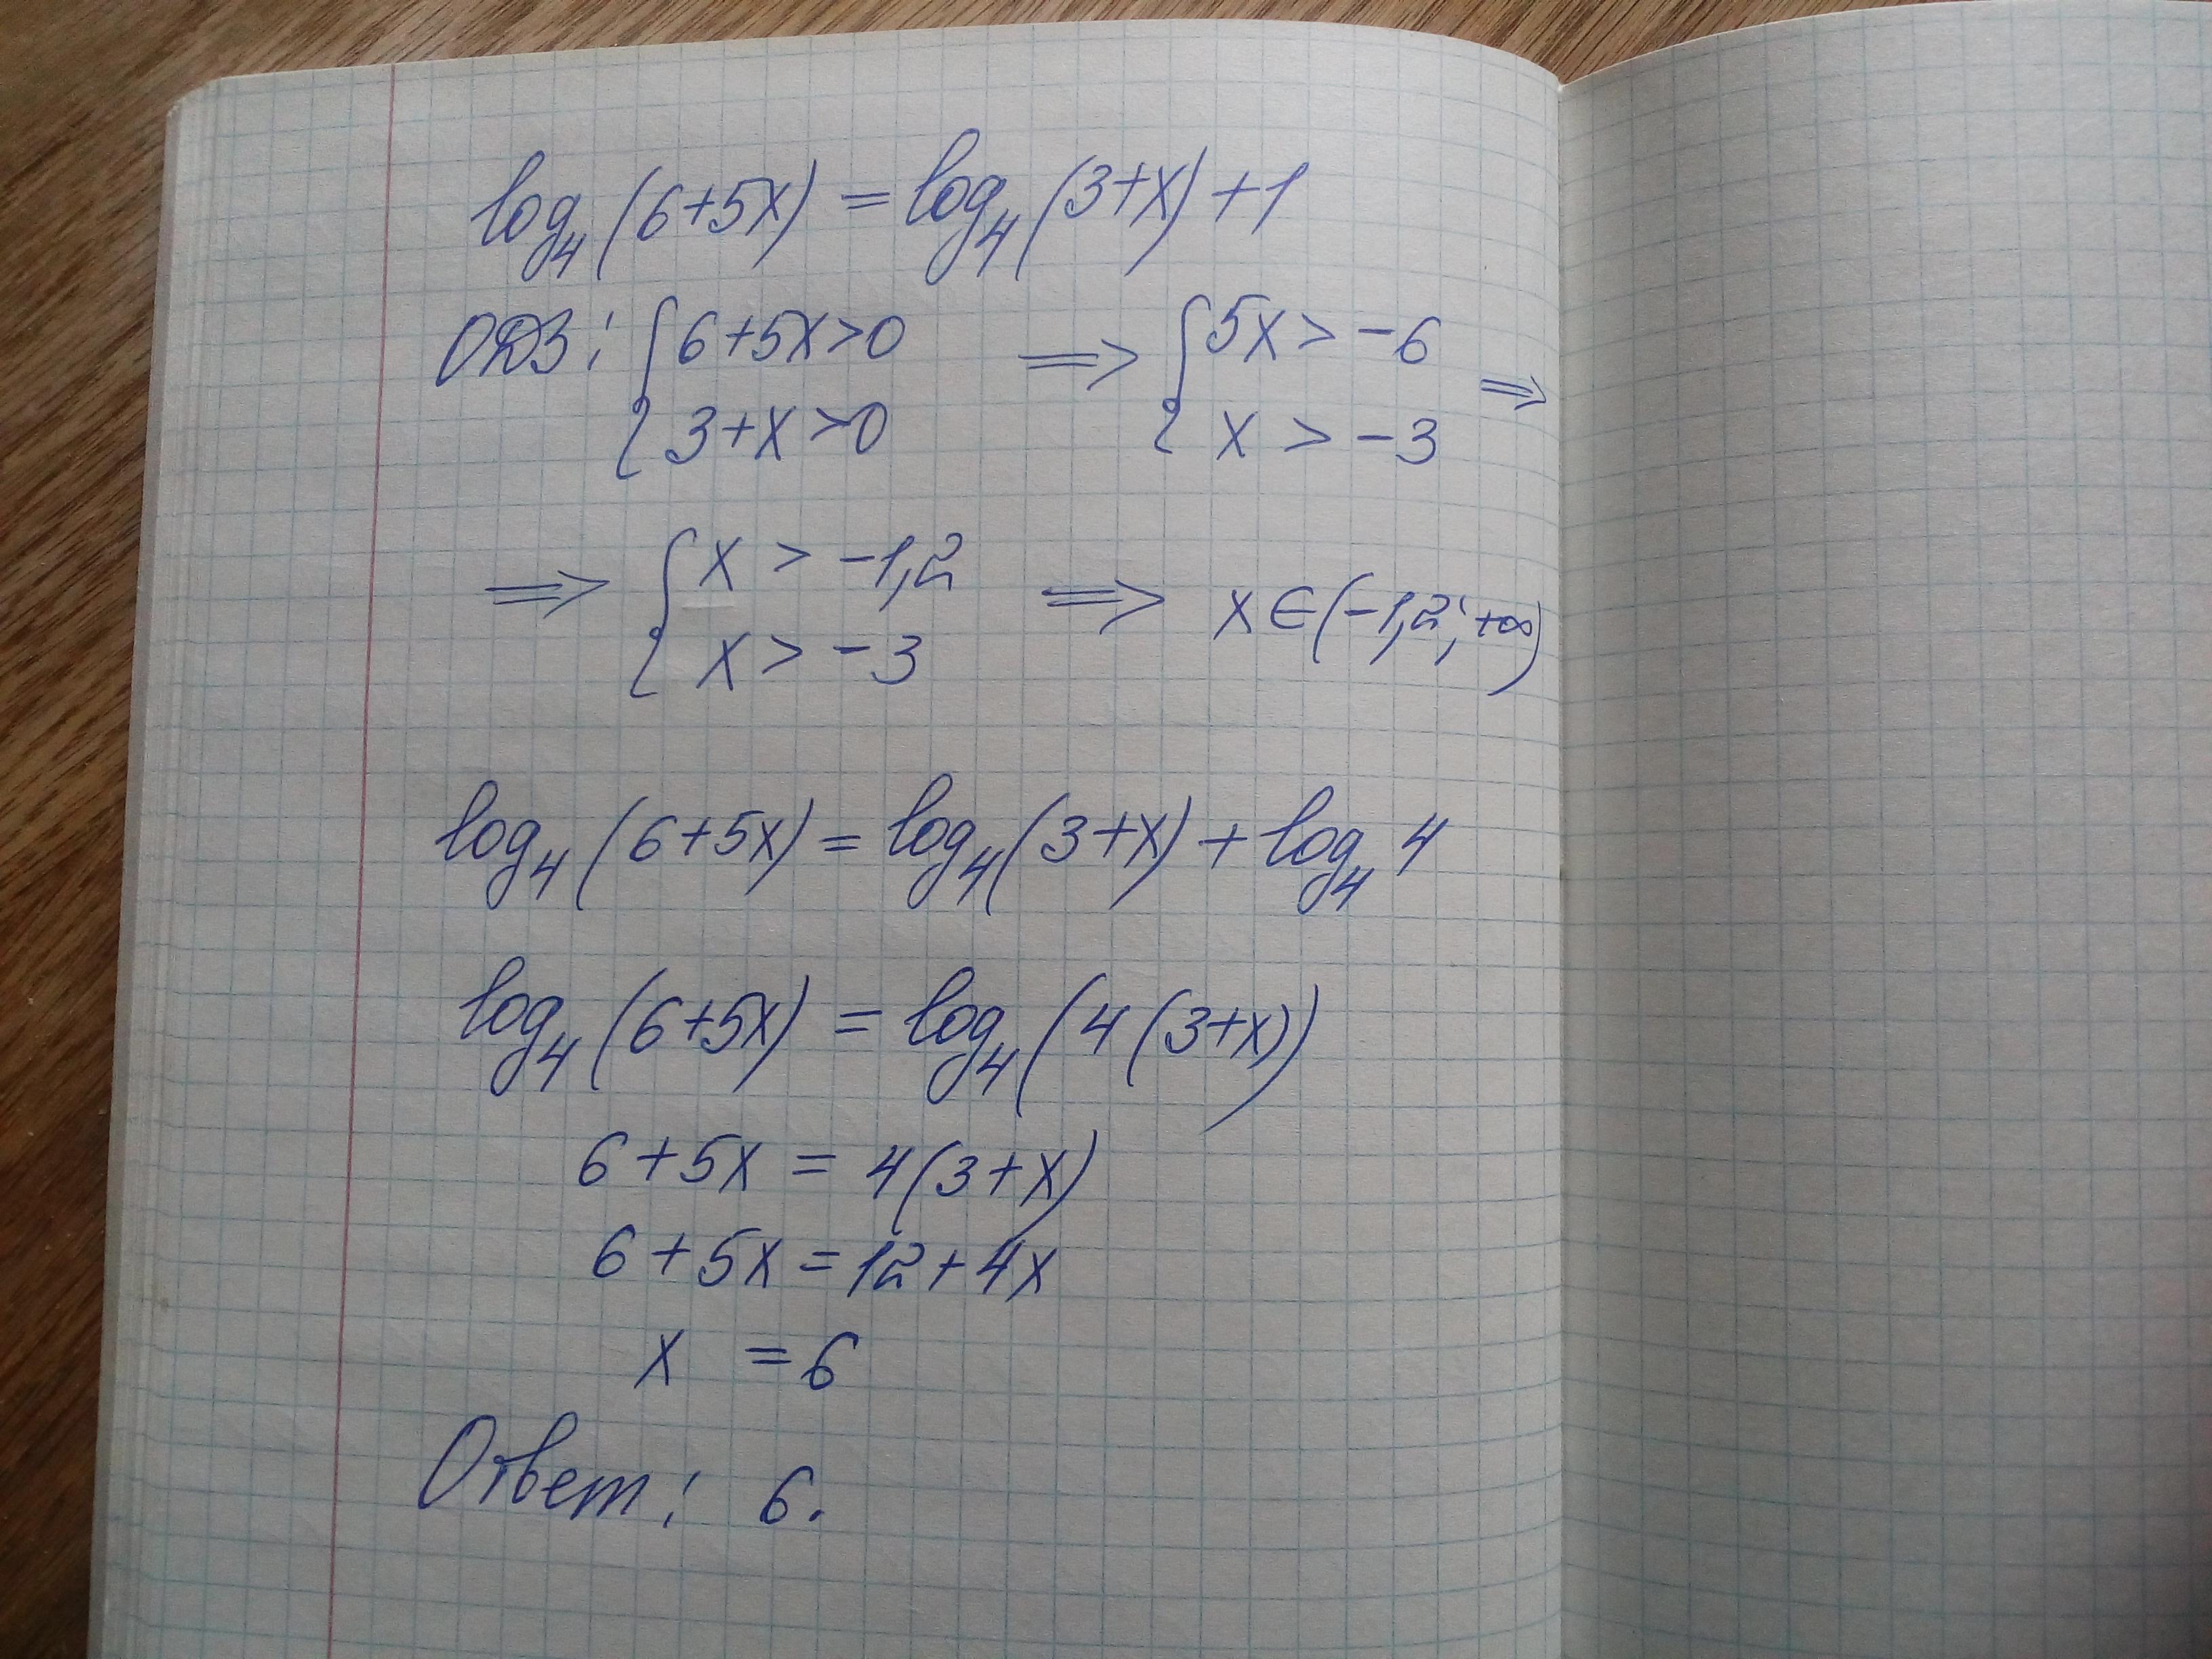 log₄(6+5x) = log₄(3+x)+1
ОДЗ: { 6+5x>0 ⇒ { 5x > -6 ⇒
3+x>0 x > -3
⇒ { x > -1,2 ⇒ x∈(-1,2; +∞)
x > -3
log₄(6+5x) = log₄(3+x) + log₄4
log₄(6+5x) = log₄(4(3+x))
6+5x = 4(3+x)
6+5x = 12+4x
x = 6
Ответ: 6.